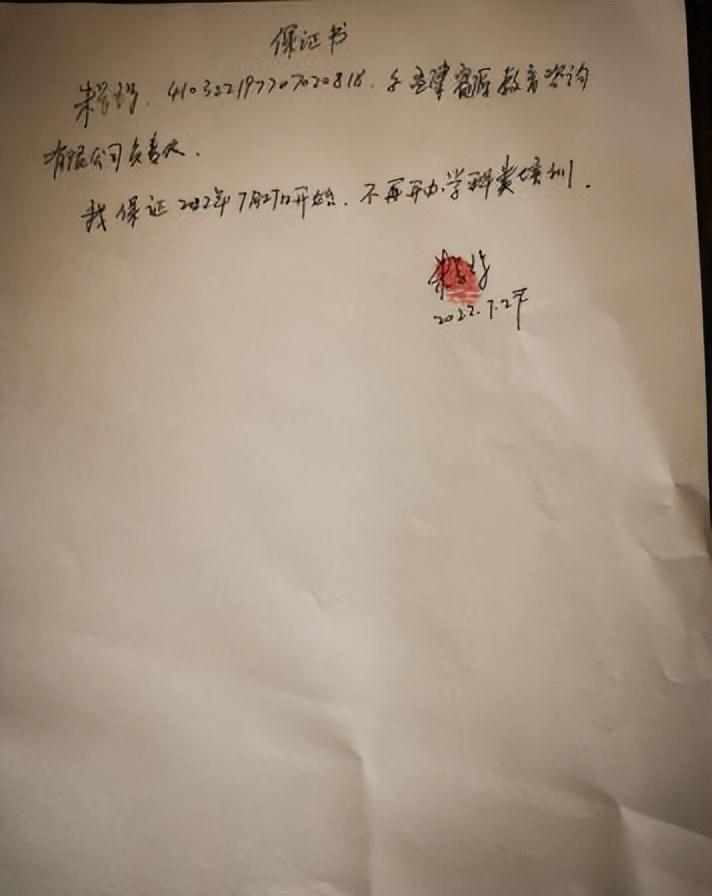 保证书
朱 410322197707020818. 系孟津 源教育咨询
有限公司负责人.
我保证2022年7月27日开始.不再开办学科类培训.
朱
2022.7.27